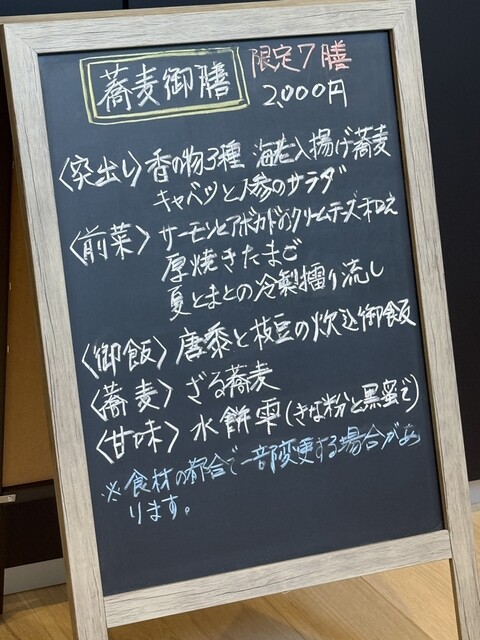 蕎麦御膳 限定7膳
2,000円
〈突出し〉香の物3種 海老入揚げ蕎麦
キャベツと人参のサラダ
〈前菜〉サーモンとアボカドのクリームチーズ和え
厚焼きたまご
夏とまとの冷製擂り流し
〈御飯〉唐黍と枝豆の炊込御飯
〈蕎麦〉ざる蕎麦
〈甘味〉水餅雫(きな粉と黒蜜で)
※食材の都合で一部変更する場合があ
ります。